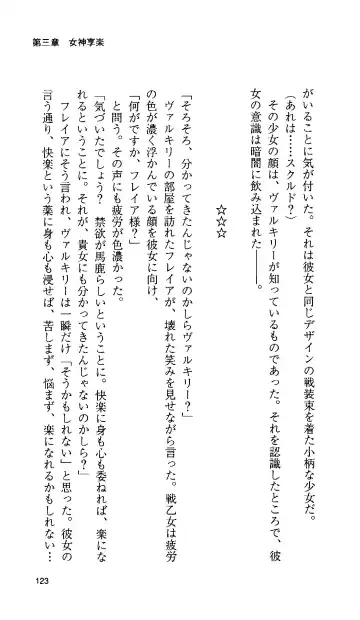 第三章　女神享楽
がいることに気が付いた。それは彼女と同じデザインの戦装束を着た小柄な少女だ。
（あれは……スクルド？）
その少女の顔は、ヴァルキリーが知っているものであった。それを認識したところで、彼
女の意識は暗闇に飲み込まれた――。
☆☆☆
「そろそろ、分かってきたんじゃないのかしらヴァルキリー？」
ヴァルキリーの部屋を訪れたフレイアが、壊れた笑みを見せながら言った。戦乙女は疲労
の色が濃く浮かんでいる顔を彼女に向け、
「何がですか、フレイア様？」
と問う。その声にも疲労が色濃かった。
「気づいたでしょう？　禁欲が馬鹿らしいということに。快楽に身も心も委ねれば、楽にな
れるということに。それが、貴女にも分かってきたんじゃないのかしら？」
フレイアにそう言われ、ヴァルキリーは一瞬だけ「そうかもしれない」と思った。彼女の
言う通り、快楽という薬に身も心も浸せば、苦しまず、悩まず、楽になれるかもしれない…
123